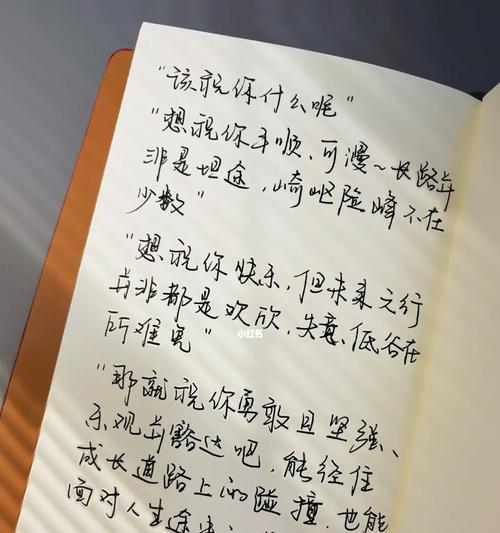 "该祝你什么呢"
"想祝你平顺，可漫~长路并
非是坦途，崎岖险峰不在
少数"
"想祝你快乐，但未来之行
并非都是欢欣，失意、低谷在
所难免"
小红书
"那就祝你勇敢且坚强、
乐观并豁达吧，能经住
成长道路上的碰撞，也能
面对人生途